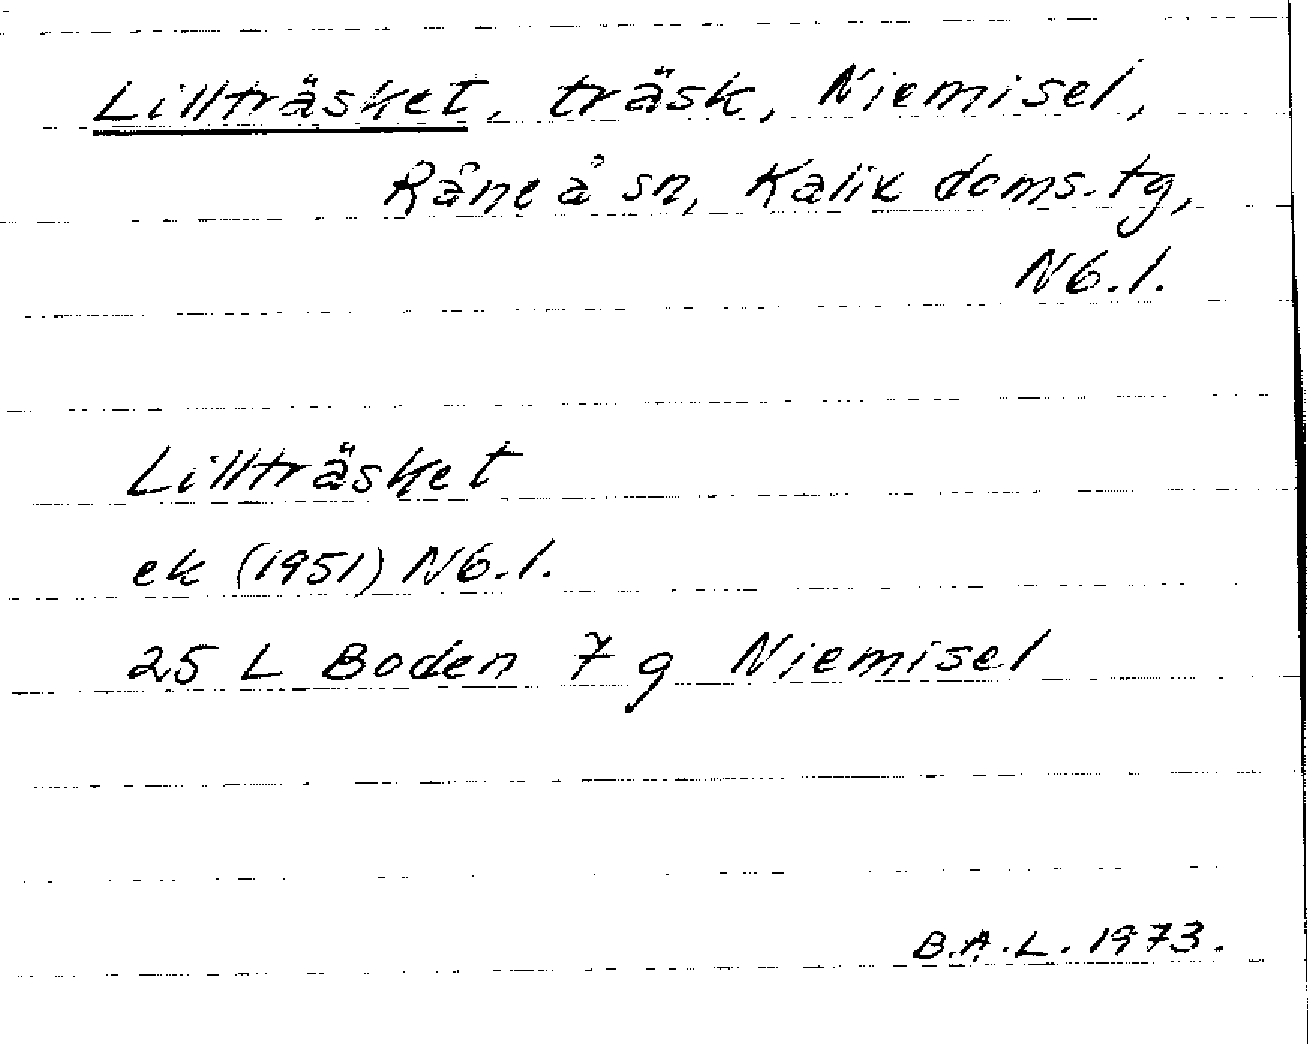 Lillträsket, träsk, Niemisel,
Råneå sn, Kalix doms.tg,
Nb.l.
Lillträsket
ek (1951) Nb.l.
25 L Boden 7 g Niemisel
B.A.L. 1973.